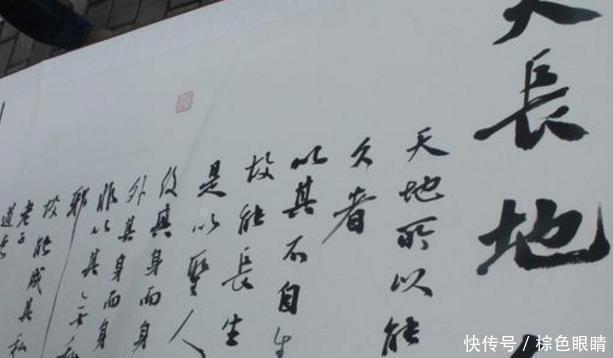 天長地
天地所以能
久者
以其不自生
故能長生
是以聖人
後其身而身
外其身而身
非以其無私
邪
故能成其私
老子
道
快传号/棕色眼睛